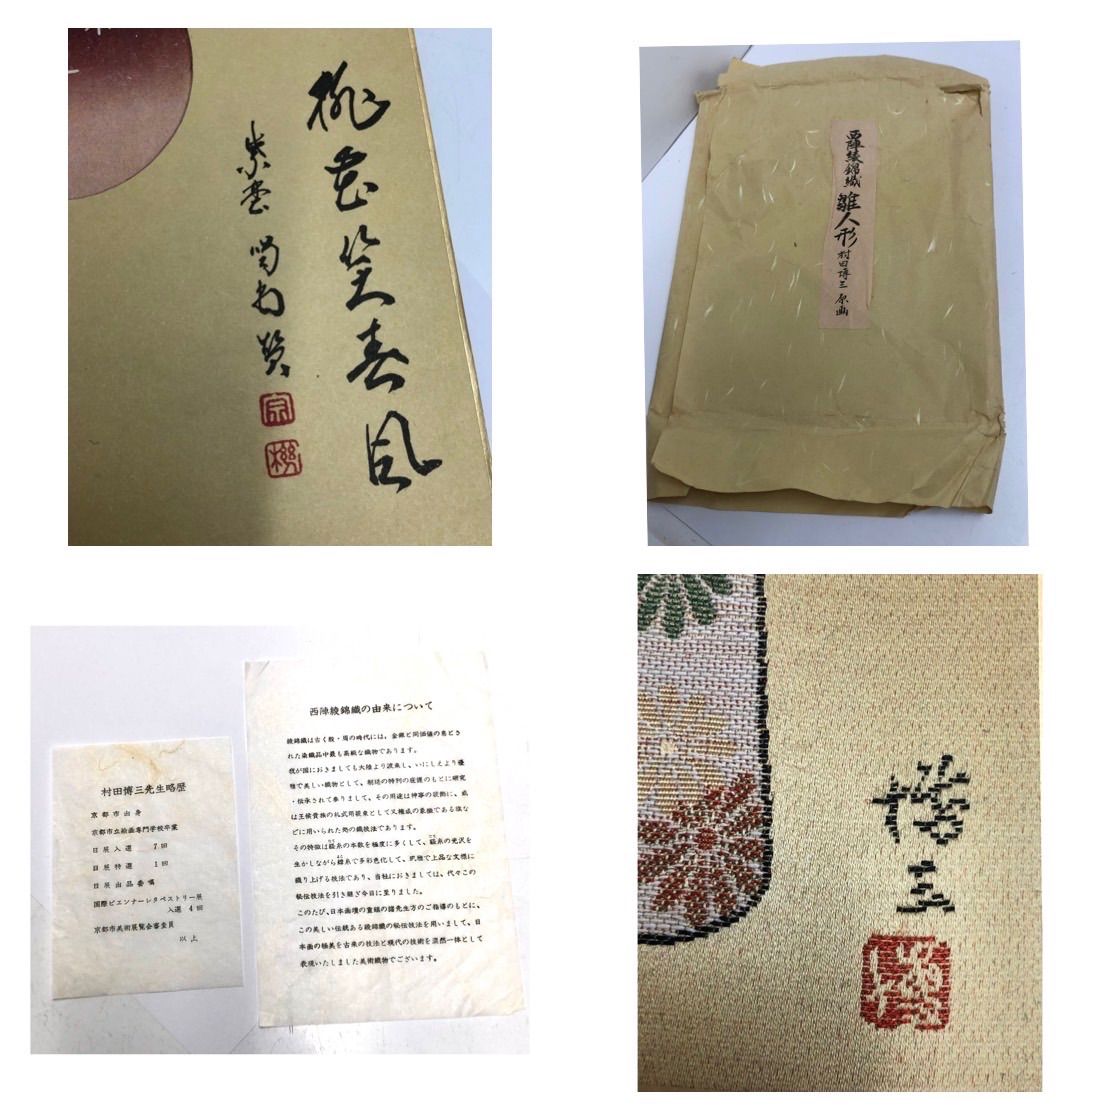 桃花笑春風
紫雲
賛
宗
西陣綾錦織 雛人形 村田博三 原画
村田博三先生略歴
京都市出身
京都市立絵画専門学校卒業
日展入選 7回
日展特選 1回
日展出品委嘱
国際ビエンナーレタペストリー展
入選 4回
京都市美術展覧会審査員
以上
西陣綾錦織の由来について
綾錦織は古く殷・周の時代には、金銀と同価値の惠とさ
れた染織品中最も高級な織物であります。
我が国におきましても大陸より渡来し、いにしえより優
雅で美しい織物として、朝廷の特別の庇護のもとに研究
・伝承されて参りまして、その用途は神事の装飾に、或
は王候貴族の礼式用装束として又権威の象徴である旗な
どに用いられた処の織技法であります。
その特徴は経糸の本数を極度に多くして、経糸の光沢を
生かしながら緯糸で多彩色化して、典雅で上品な文様に
織り上げる技法であり、当社におきましては、代々この
秘伝技法を引き継ぎ今日に至りました。
このたび、日本画壇の重鎮の諸先生方のご指導のもとに、
この美しい伝統ある綾錦織の秘伝技法を用いまして、日
本画の極美を古来の技法と現代の技術を渾然一体として
表現いたしました美術織物でございます。
博三